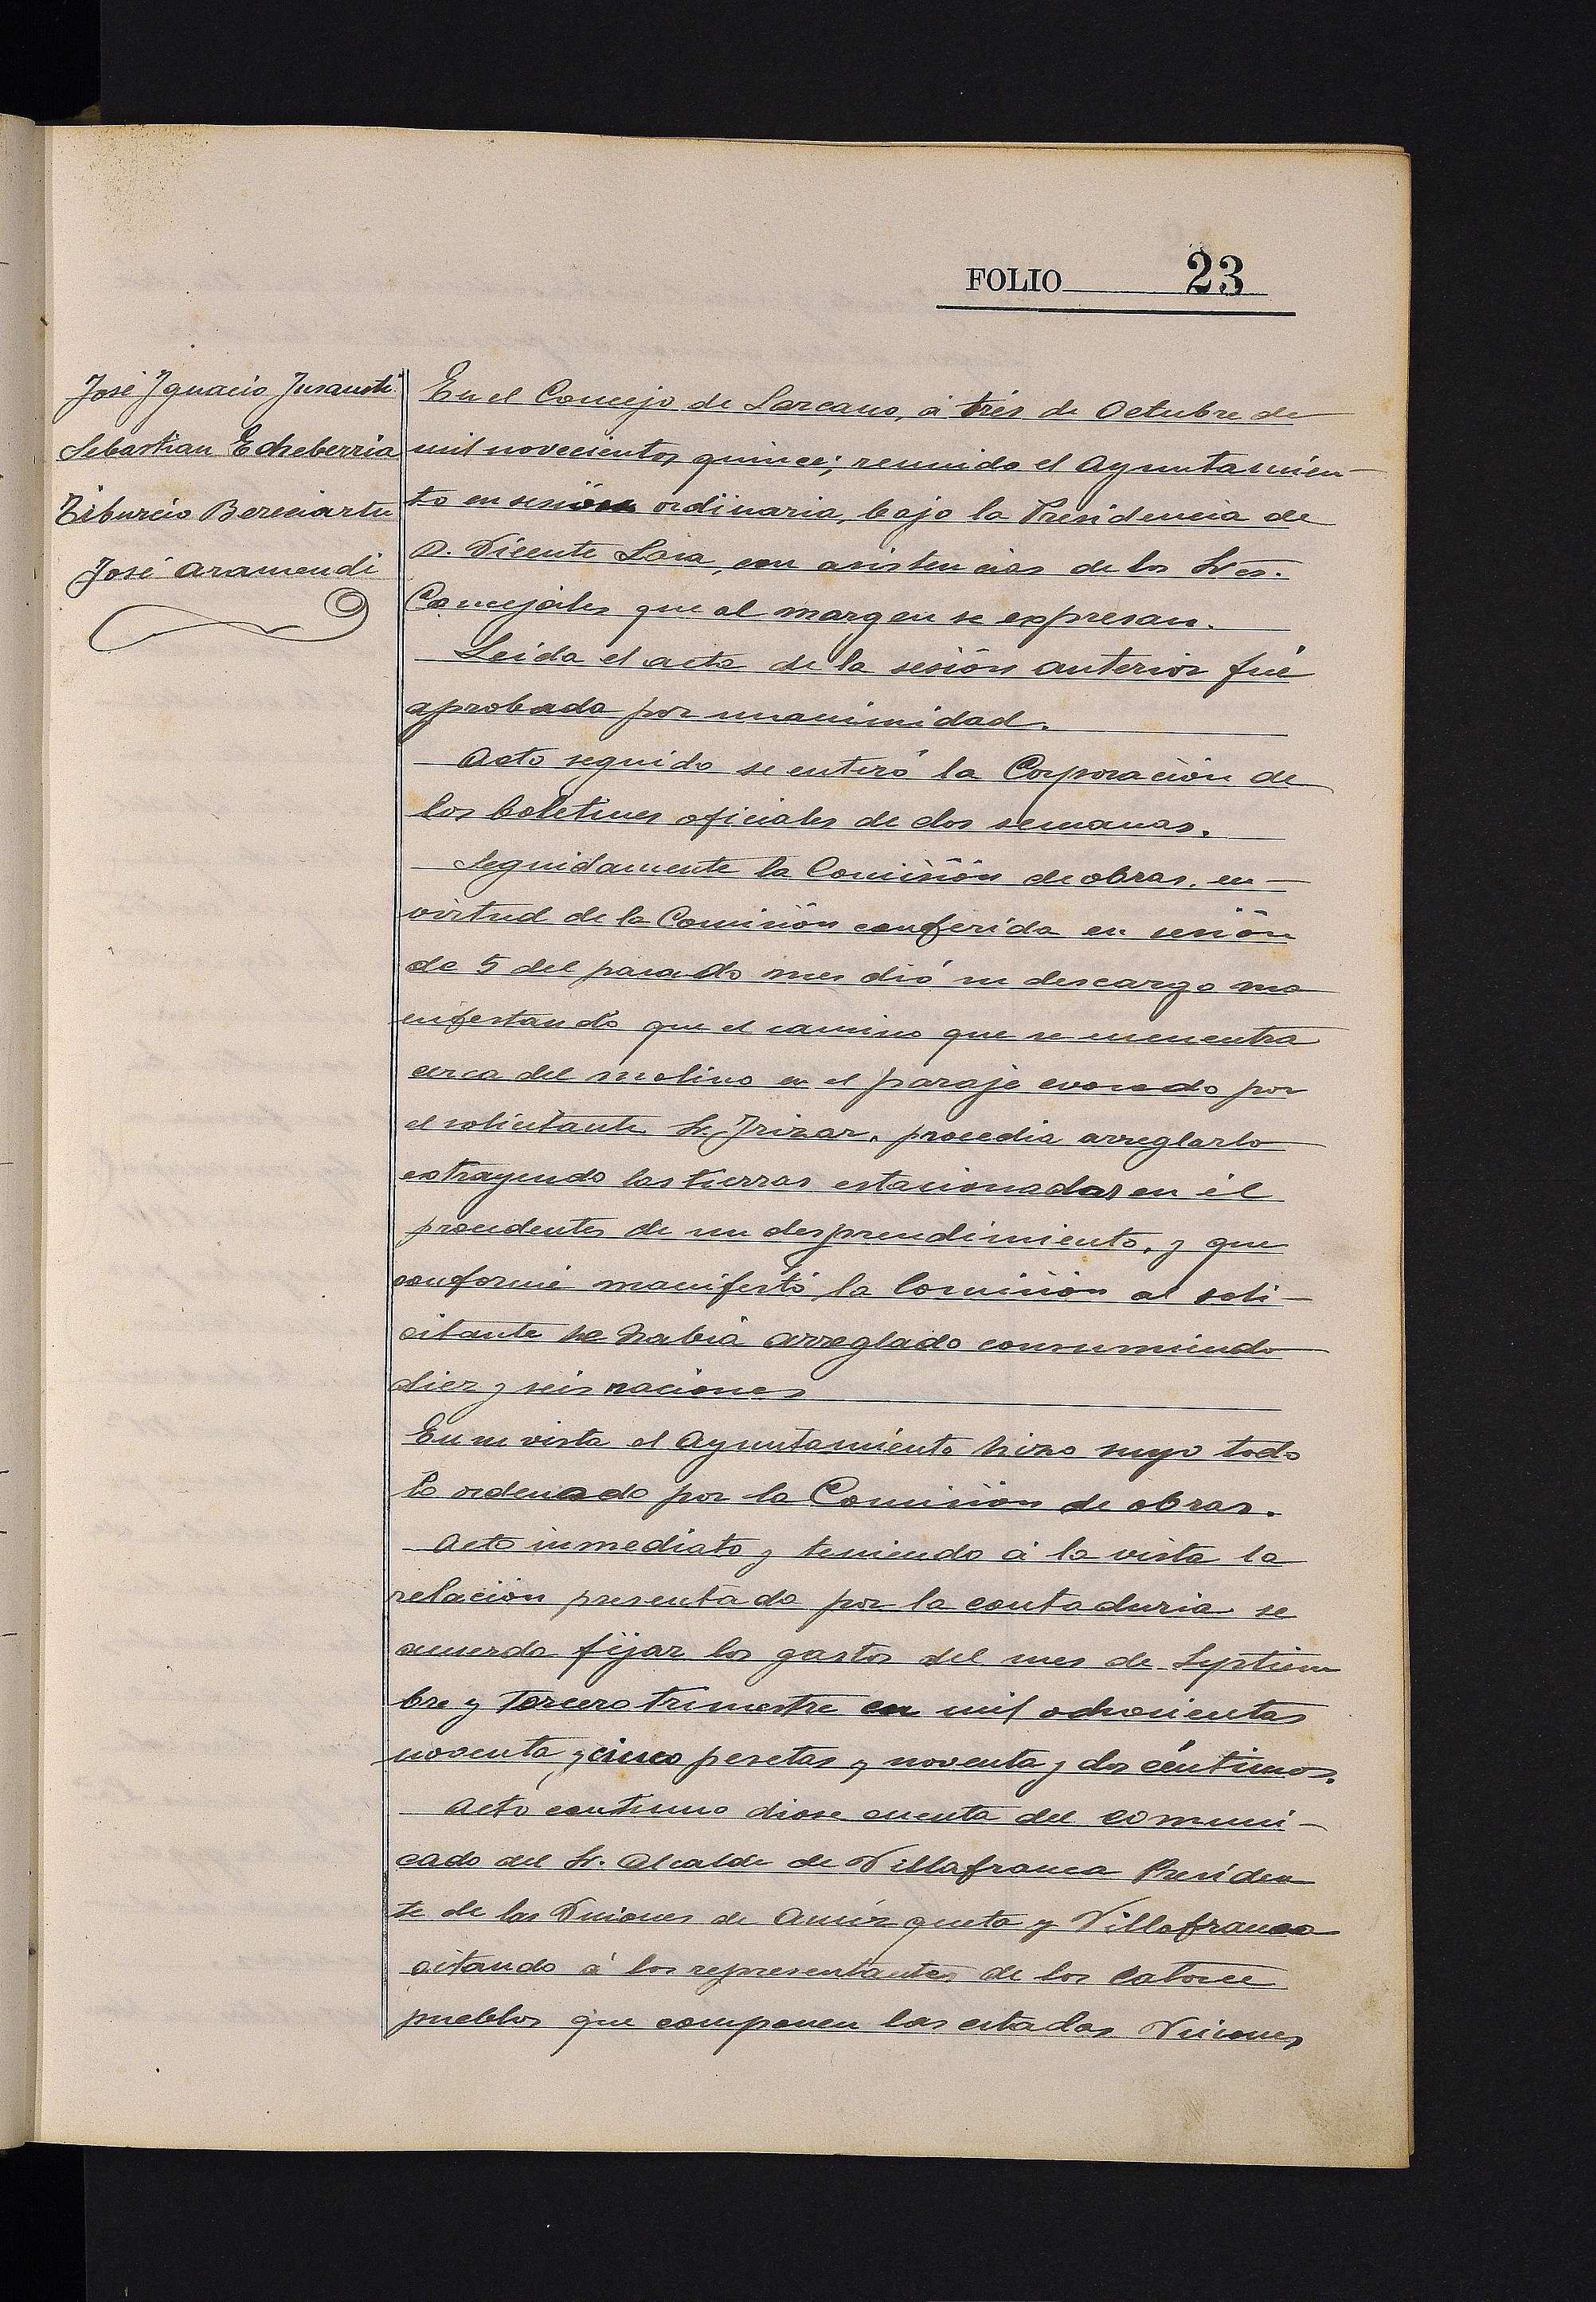 FOLIO 23
José Ignacio Jusausti
Sebastian Echeberria
Tiburcio Bereciartu
José Aramendi
En el Concejo de Lazcano, á trés de Octubre de
mil novecientos quince; reunido el Ayuntamien-
to en sesión ordinaria, bajo la Presidencia de
D. Vicente Lasa, con asistencias de los Sres.
Concejales que al margen se expresan.
Leida el acta de la sesión anterior fué
aprobada por unanimidad.
Acto seguido se enteró la Corporación de
los boletines oficiales de dos semanas.
Seguidamente la Comisión de obras, en-
virtud de la Comisión conferida en sesión
de 5 del pasado mes dió su descargo ma
nifestando que el camino que se encuentra
cerca del molino en el paraje evocado por
el solicitante Sr. Irizar, procedia arreglarlo
estrayendo las tierras estacionadas en él
procedentes de un desprendimiento, y que
conforme manifestó la Comisión al soli-
citante se habia arreglado consumiendo
diez y seis raciones
En su vista el Ayuntamiento hizo suyo todo
lo ordenado por la Comisión de obras.
Acto inmediato y teniendo á la vista la
relación presentada por la contaduria se
acuerda fijar los gastos del mes de Septiem
bre y Tercero trimestre en mil ochocientas
noventa y cinco pesetas y noventa y dos céntimos.
Acto continuo diose cuenta del comuni-
cado del Sr. Alcalde de Villafranca Presiden
te de las Uniones de Amézqueta y Villafranca
citando á los representantes de los catorce
pueblos que componen las citadas Uniones